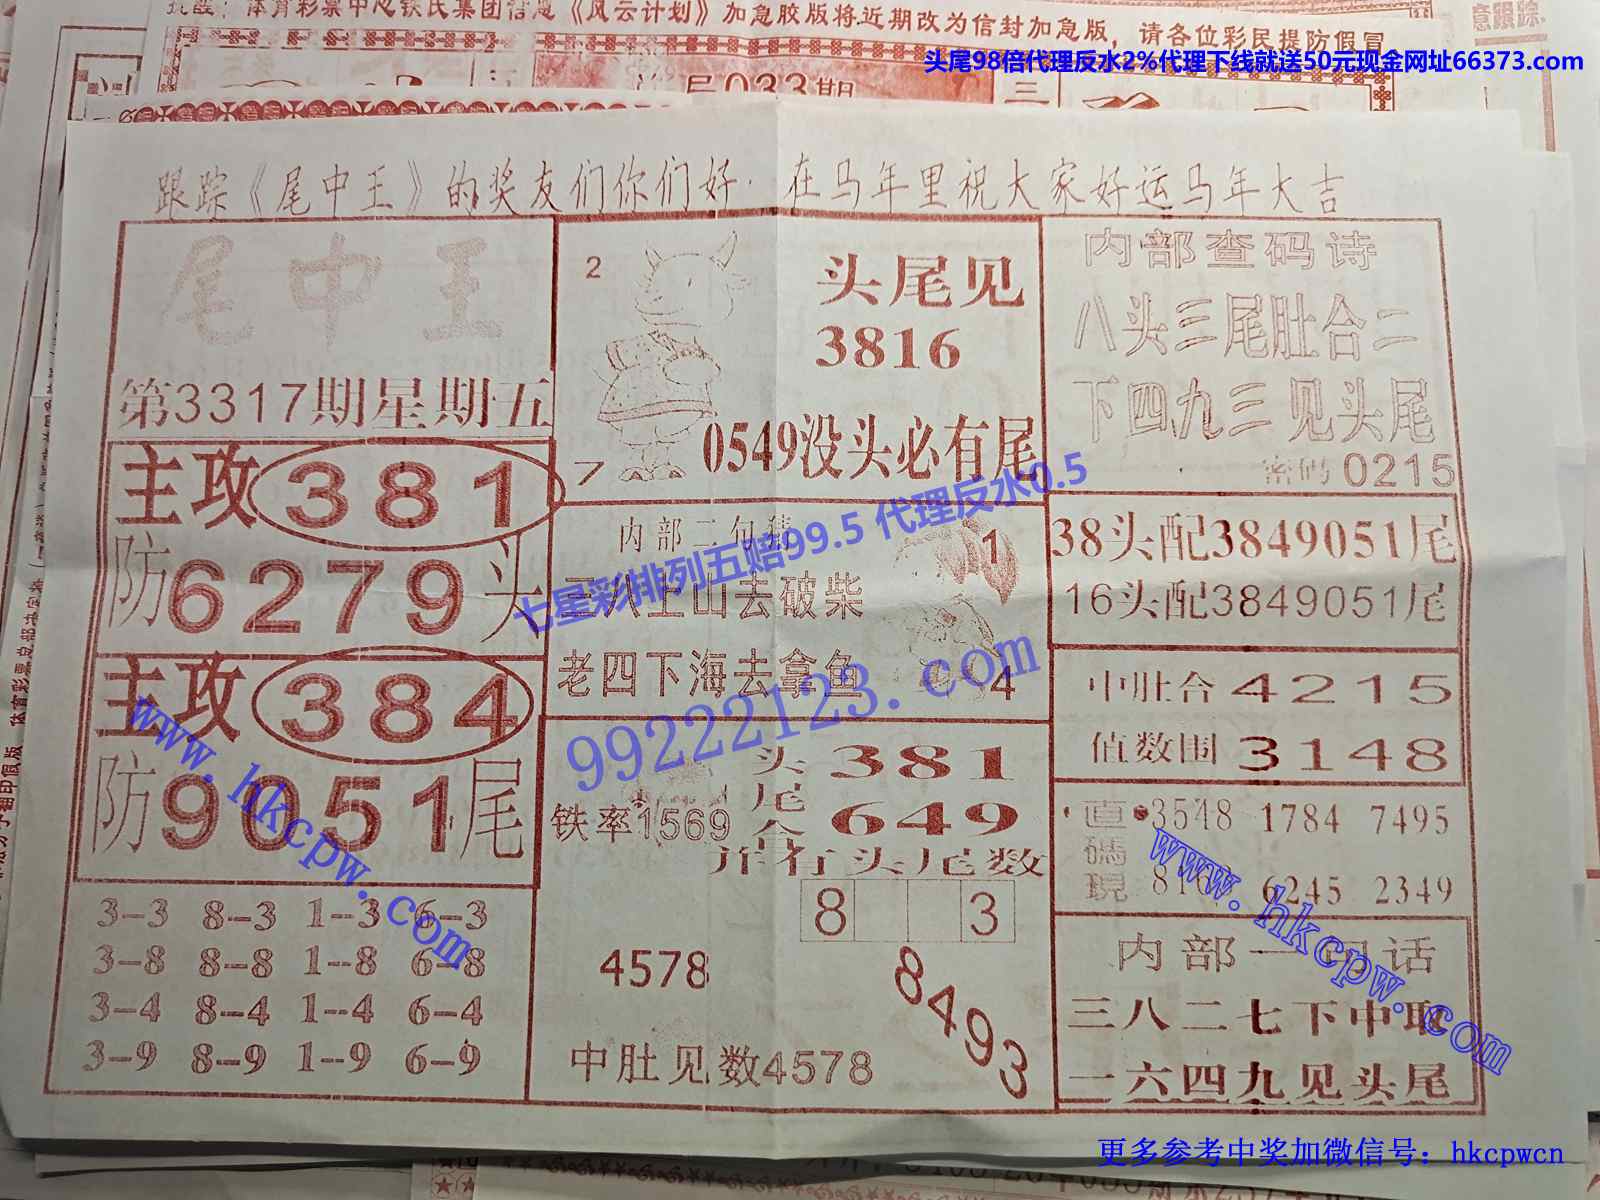 体育彩票中心铁民集团信息《风云计划》加急胶版将近期改为信封加急版，请各位彩民提防假冒
头尾98倍代理反水2%代理下线就送50元现金网址66373.com
033期
跟踪《尾中王》的奖友们你们好·在马年里祝大家好运马年大吉
尾中王
第3317期星期五
主攻381
防6279头
主攻384
防9051尾
3-3 8-3 1-3 6-3
3-8 8-8 1-8 6-8
3-4 8-4 1-4 6-4
3-9 8-9 1-9 6-9
2
头尾见
3816
0549没头必有尾
7
内部二句
1
上山去破柴
老四下海去拿鱼
4
头381
尾
合649
铁率1569
并有头尾数
8 3
4578
8493
中肚见数4578
内部查码诗
八头三尾肚合二
下四九三见头尾
密码0215
38头配3849051尾
16头配3849051尾
中肚合4215
值数围3148
直碼現
3548 1784 7495
6245 2349
内部一句话
三八二七下中取
一六四九见头尾
七星彩排列五赔99.5 代理反水0.5
99222123.com
www.hkcpw.com
www.hkcpw.com
更多参考中奖加微信号：hkcpwcn